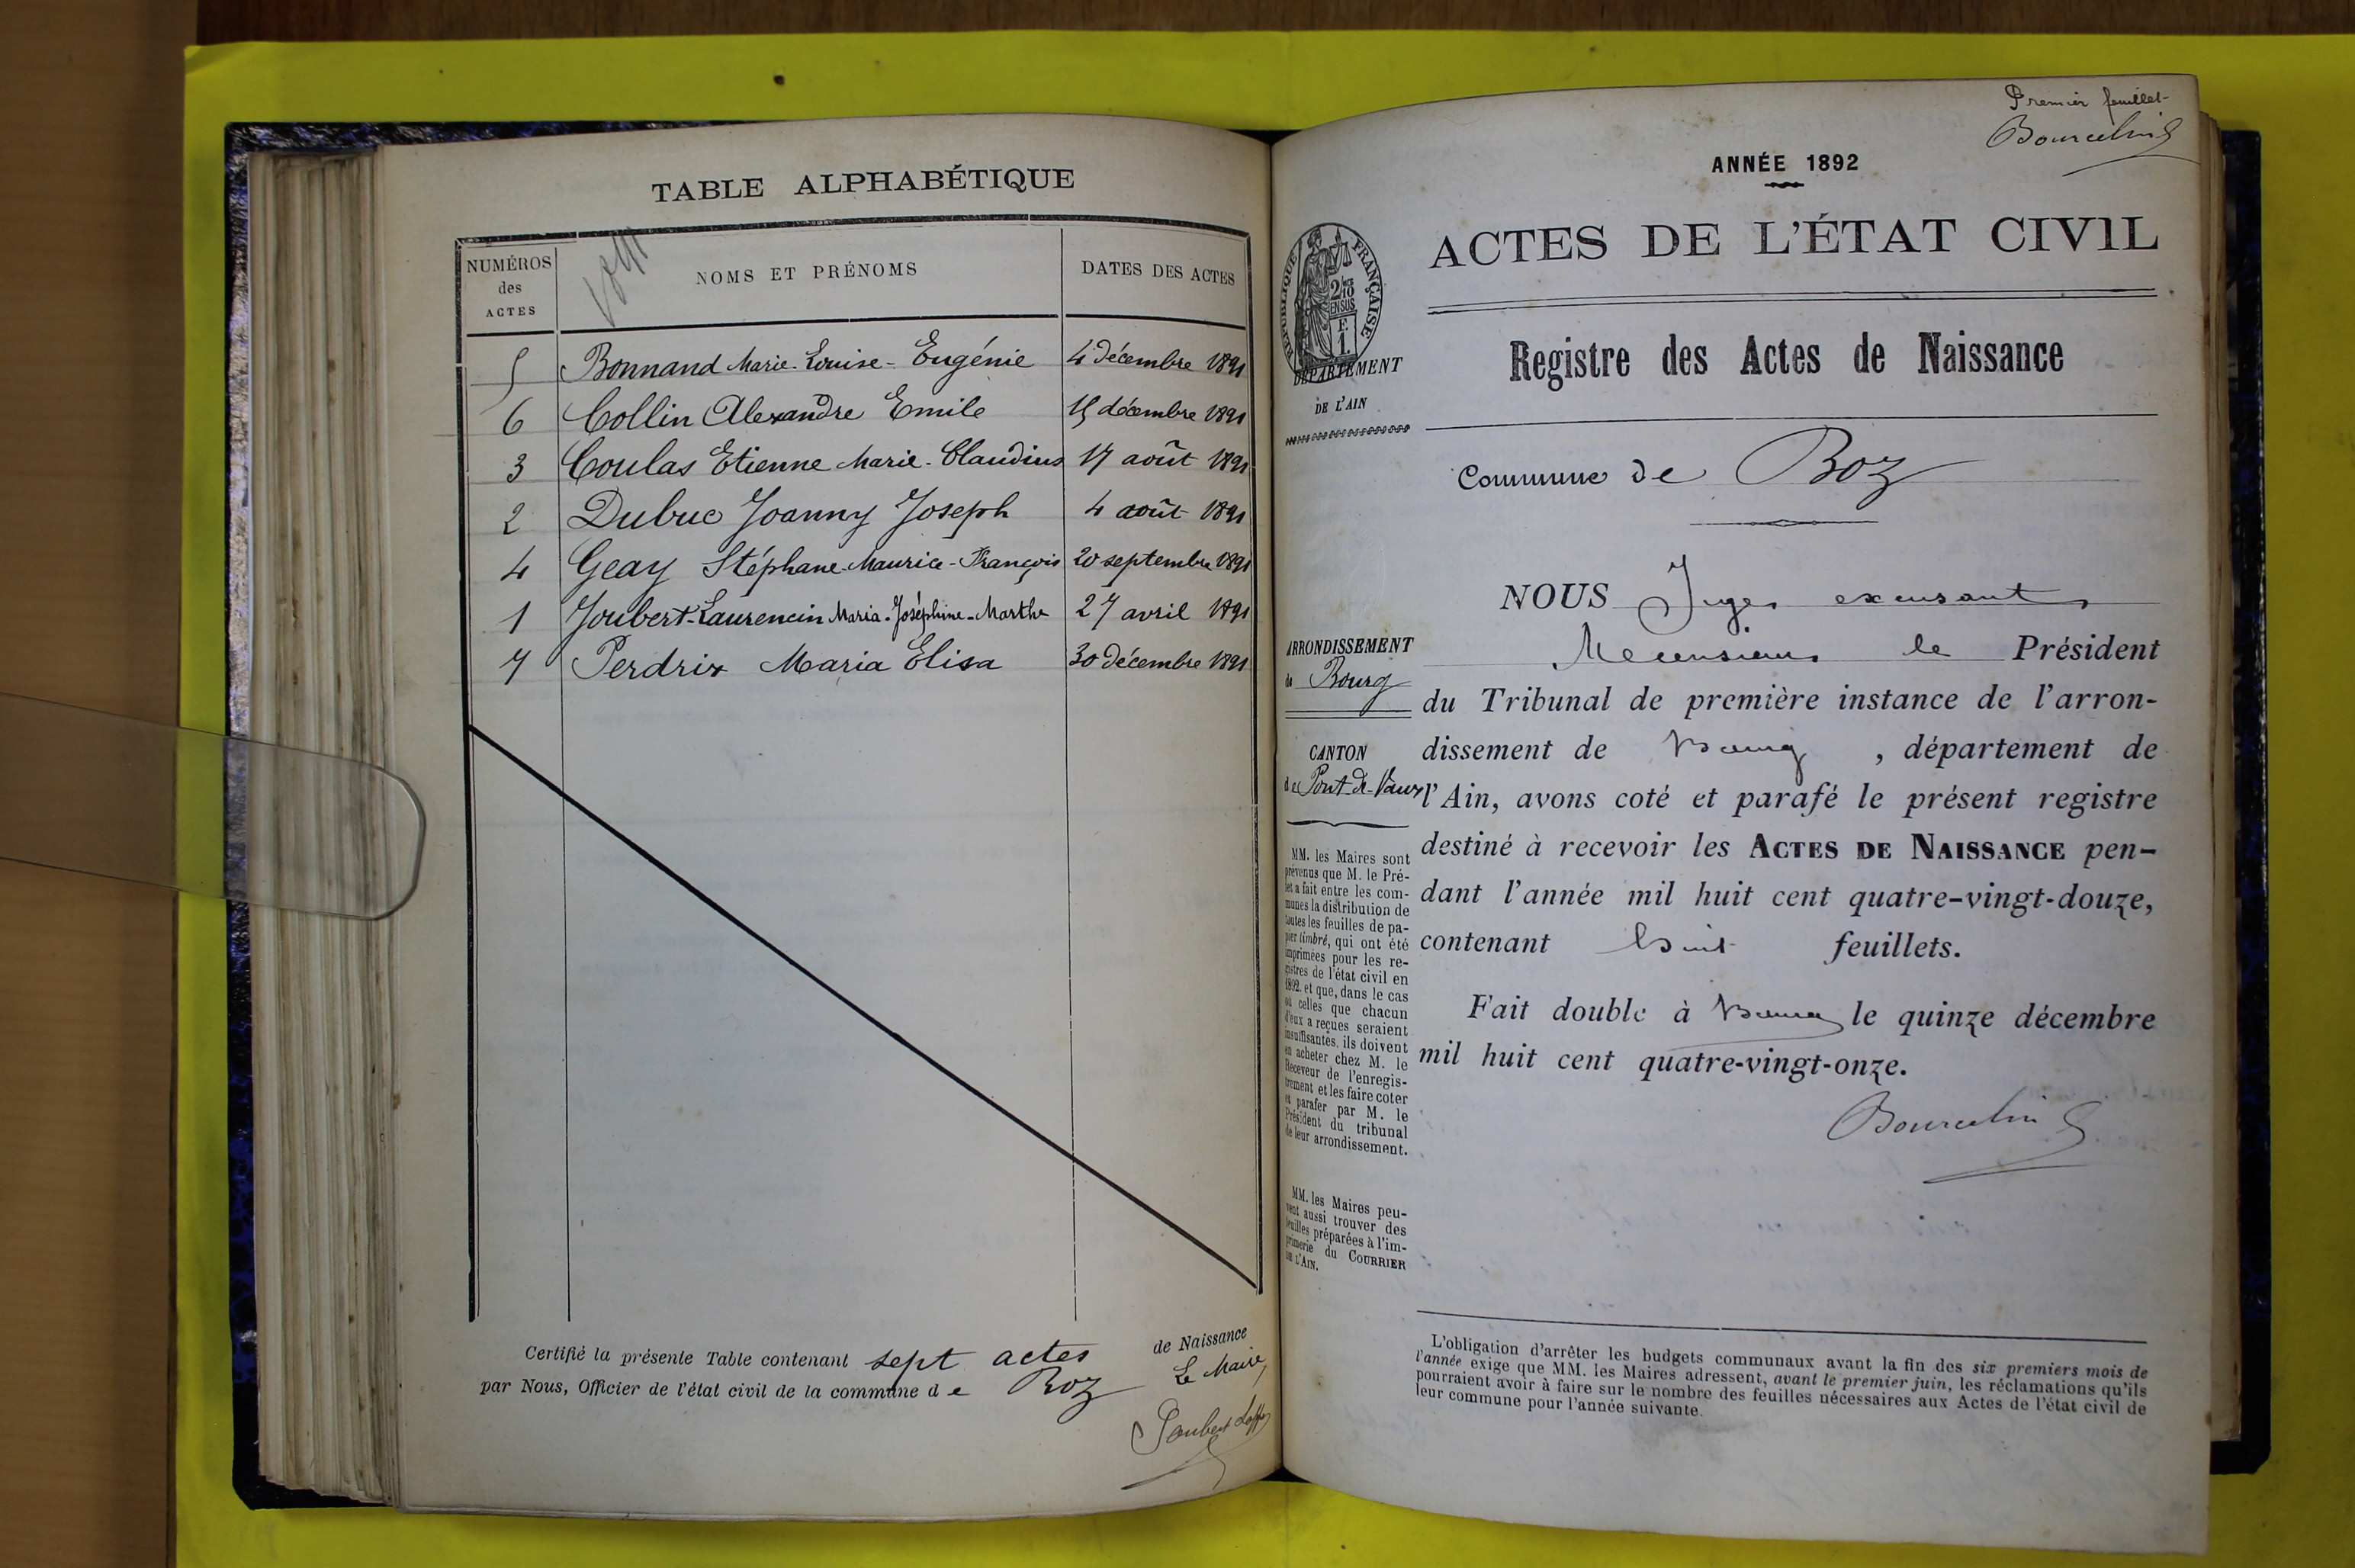 TABLE ALPHABÉTIQUE
NUMÉROS des ACTES
NOMS ET PRÉNOMS
DATES DES ACTES
5 Bonnand Marie-Louise-Eugénie 4 décembre 1891
6 Collin Alexandre Emile 15 décembre 1891
3 Coulas Etienne Marie-Claudius 17 août 1891
2 Dubuc Joanny Joseph 4 août 1891
4 Geay Stéphane-Maurice-François 20 septembre 1891
1 Joubert-Laurencin Maria-Joséphine-Marthe 27 avril 1891
7 Perdrix Maria Elisa 30 décembre 1891
Certifié la présente Table contenant sept actes de Naissance
par Nous, Officier de l'état civil de la commune de Boz Le Maire,
Premier feuillet
Bourcelin
ANNÉE 1892
ACTES DE L'ÉTAT CIVIL
RÉPUBLIQUE FRANÇAISE
2/10
EN SUS
F.
1.
DÉPARTEMENT
DE L'AIN
Registre des Actes de Naissance
Commune de Boz
ARRONDISSEMENT
de Bourg
CANTON
de Pont-de-Vaux
MM. les Maires sont
prévenus que M. le Pré-
fet a fait entre les com-
munes la distribution de
toutes les feuilles de pa-
pier timbré, qui ont été
imprimées pour les re-
gistres de l'état civil en
1892. et que, dans le cas
où celles que chacun
d'eux a reçues seraient
insuffisantes, ils doivent
en acheter chez M. le
Receveur de l'enregis-
trement et les faire coter
et parafer par M. le
Président du tribunal
de leur arrondissement.
MM. les Maires peu-
vent aussi trouver des
feuilles préparées à l'im-
primerie du COURRIER
DE L'AIN.
NOUS Juge
le Président
du Tribunal de première instance de l'arron-
dissement de Bourg, département de
l'Ain, avons coté et parafé le présent registre
destiné à recevoir les ACTES DE NAISSANCE pen-
dant l'année mil huit cent quatre-vingt-douze,
contenant huit feuillets.
Fait double à Bourg le quinze décembre
mil huit cent quatre-vingt-onze.
Bourcelin
L'obligation d'arrêter les budgets communaux avant la fin des six premiers mois de
l'année exige que MM. les Maires adressent, avant le premier juin, les réclamations qu'ils
pourraient avoir à faire sur le nombre des feuilles nécessaires aux Actes de l'état civil de
leur commune pour l'année suivante.